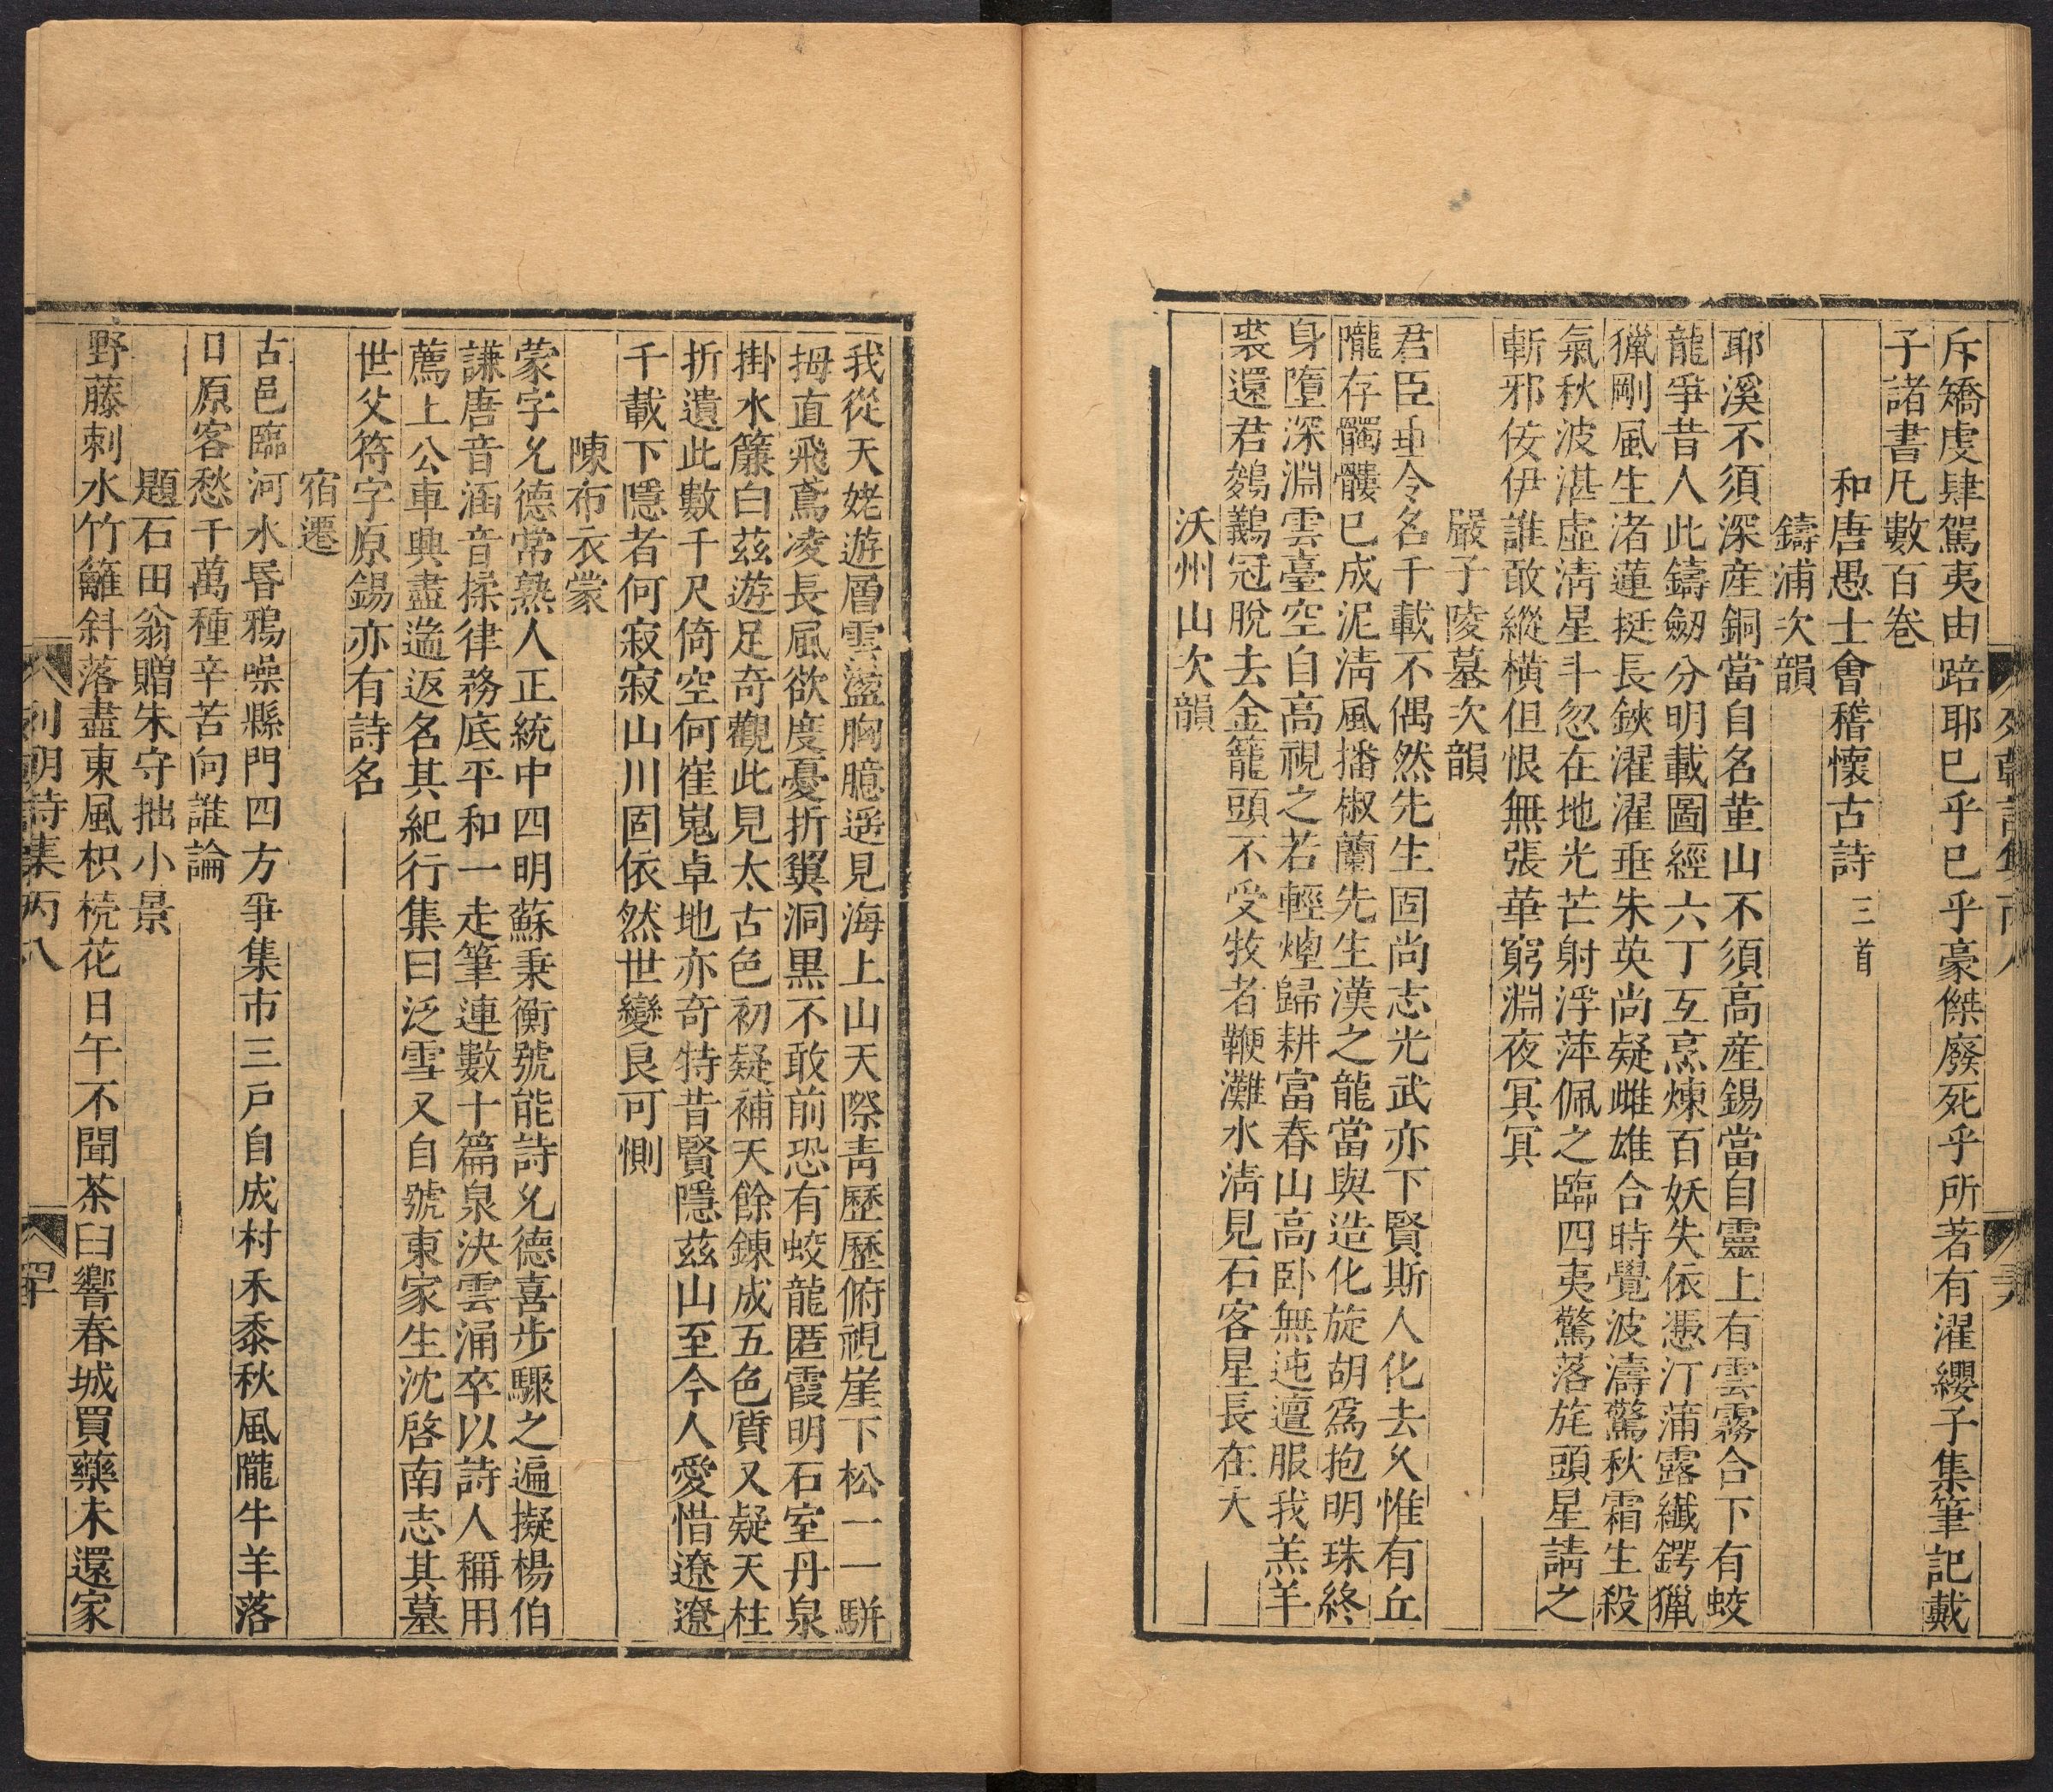 斥矯虔肆駕夷由踣耶已乎已乎豪傑廢死乎所若有濯纓子集筆記戴
子諸書凡數百卷
和唐愚士會稽懷古詩三首
鑄浦次韻
耶溪不須深産銅當自名菫山不須高産錫當自靈上有雲霧合下有蛟
龍爭昔人此鑄劒分明載圖經六丁互烹煉百妖失依憑汀蒲露纖鍔獵
獵剛風生渚蓮挺長鋏濯濯垂朱英尚疑雌雄合時覺波濤驚秋霜生殺
氣秋波湛虛淸星斗忽在地光芒射浮萍佩之臨四夷驚落旄頭星請之
斬邪佞伊誰敢縱橫但恨無張華窮淵夜冥冥
嚴子陵墓次韻
君臣垂令名千載不偶然先生固尚志光武亦下賢斯人化去乆惟有丘
隴存髑髏已成泥淸風播椒蘭先生漢之龍當與造化旋胡爲抱明珠終
身墮深淵雲臺空自高視之若輕煙歸耕富春山高卧無迍邅服我羔羊
裘還君鵕䴊冠脫去金籠頭不受牧者鞭灘水淸見石客星長在天
沃州山次韻
我從天姥遊層雲溢胸臆遥見海上山天際靑歷歷俯視崖下松一一駢
拇直飛鳶凌長風欲度憂折翼洞黑不敢前恐有蛟龍匿霞明石室丹泉
掛水簾白茲遊足奇觀此見太古色初疑補天餘錬成五色質又疑天柱
折遺此數千尺倚空何崔嵬卓地亦奇特昔賢隱茲山至今人愛惜遼遼
千載下隱者何寂寂山川固依然世變良可惻
陳布衣蒙
蒙字允德常熟人正統中四明蘇秉衡號能詩允德喜步驟之遍擬楊伯
謙唐音涵音揉律務底平和一走筆連數十篇泉決雲涌卒以詩人稱用
薦上公車興盡遄返名其紀行集曰泛雪又自號東家生沈啓南志其墓
世父符字原錫亦有詩名
宿遷
古邑臨河水昏鴉噪縣門四方爭集市三戶自成村禾黍秋風隴牛羊落
日原客愁千萬種辛苦向誰論
題石田翁贈朱守拙小景
野藤刺水竹籬斜落盡東風枳㯋花日午不聞茶臼響春城買藥未還家
列朝詩集丙八
四十